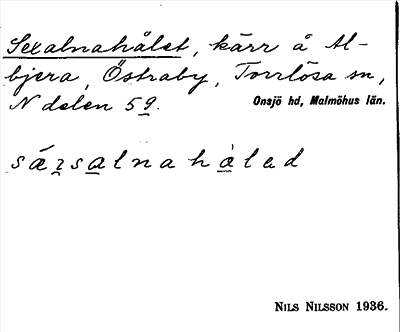 Sexalnahålet, kärr å Al-
bjera, Östraby, Torrlösa sn,
N delen 59. Onsjö hd, Malmöhus län.
sǽʒsalnahàlad
NILS NILSSON 1936.